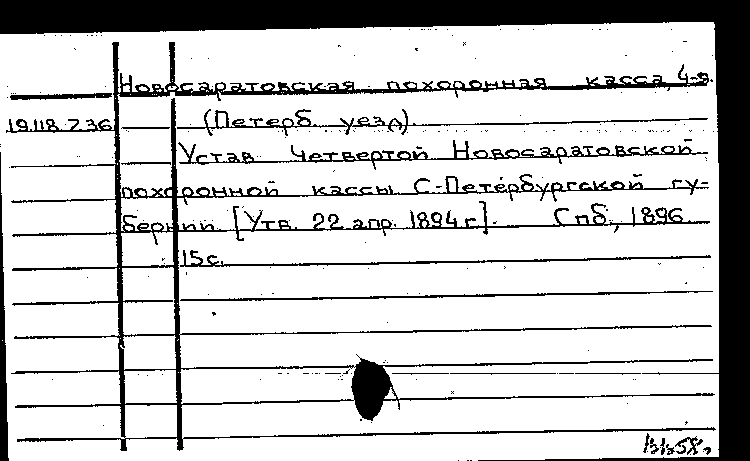 Новосаратовская похоронная касса, 4-я.
19.118.7.36 (Петерб. уезд)
Устав Четвертой Новосаратовской
похоронной кассы С-Петербургской гу-
бернии [Утв. 22 апр. 1894 г.]. Спб., 1896.
15 с.